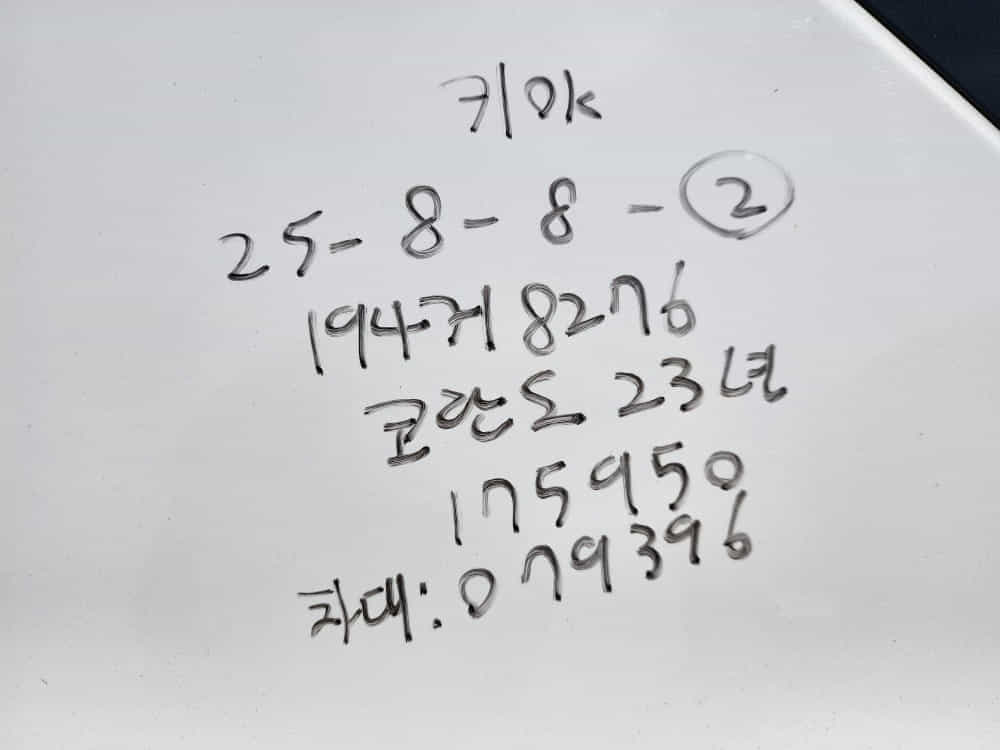 키ok
25-8-8-②
194거8276
코란도 23년
175950
차대:079396